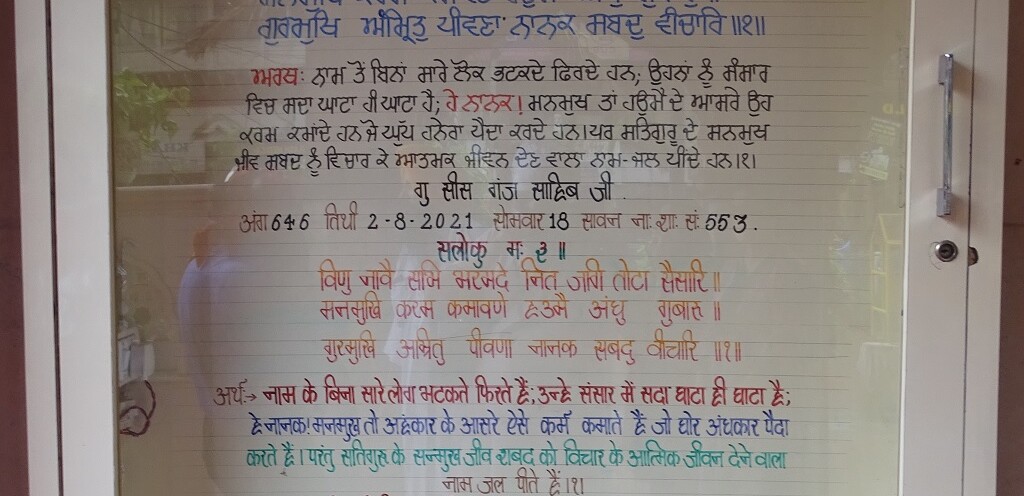 ਗੁਰਮੁਖਿ ਅੰਮ੍ਰਿਤੁ ਪੀਵਣਾ ਨਾਨਕ ਸਬਦੁ ਵੀਚਾਰਿ ॥੧॥
ਅਰਥ: ਨਾਮ ਤੋਂ ਬਿਨਾਂ ਸਾਰੇ ਲੋਕ ਭਟਕਦੇ ਫਿਰਦੇ ਹਨ; ਉਹਨਾਂ ਨੂੰ ਸੰਸਾਰ
ਵਿਚ ਸਦਾ ਘਾਟਾ ਹੀ ਘਾਟਾ ਹੈ; ਹੇ ਨਾਨਕ! ਮਨਮੁਖ ਤਾਂ ਹਉਮੈ ਦੇ ਆਸਰੇ ਉਹ
ਕਰਮ ਕਮਾਂਦੇ ਹਨ ਜੋ ਘੁੱਪ ਹਨੇਰਾ ਪੈਦਾ ਕਰਦੇ ਹਨ।ਪਰ ਸਤਿਗੁਰੂ ਦੇ ਸਨਮੁਖ
ਜੀਵ ਸਬਦ ਨੂੰ ਵਿਚਾਰ ਕੇ ਆਤਮਕ ਜੀਵਨ ਦੇਣ ਵਾਲਾ ਨਾਮ-ਜਲ ਪੀਂਦੇ ਹਨ।੧।
गु सीस गंज साहिब जी
अंग 646 तिथी 2-8-2021 सोमवार 18 सावन ना. शा. सं. 553.
सलोकु म: ३ ॥
विणु नावै सभि भरमदे नित जगि तोटा सैसारि ॥
मनमुखि करम कमावणे हउमै अंधु गुबारु ॥
गुरमुखि अम्रितु पीवणा नानक सबदु वीचारि ॥१॥
अर्थ:→ नाम के बिना सारे लोग भटकते फिरते हैं; उन्हे संसार में सदा घाटा ही घाटा है;
हे नानक! मनमुख तो अहंकार के आसरे ऐसे कर्म कमाते हैं जो घोर अंधकार पैदा
करते हैं। परंतु सतिगुरु के सन्मुख जीव शबद को विचार के आत्मिक जीवन देने वाला
नाम जल पीते हैं।१।